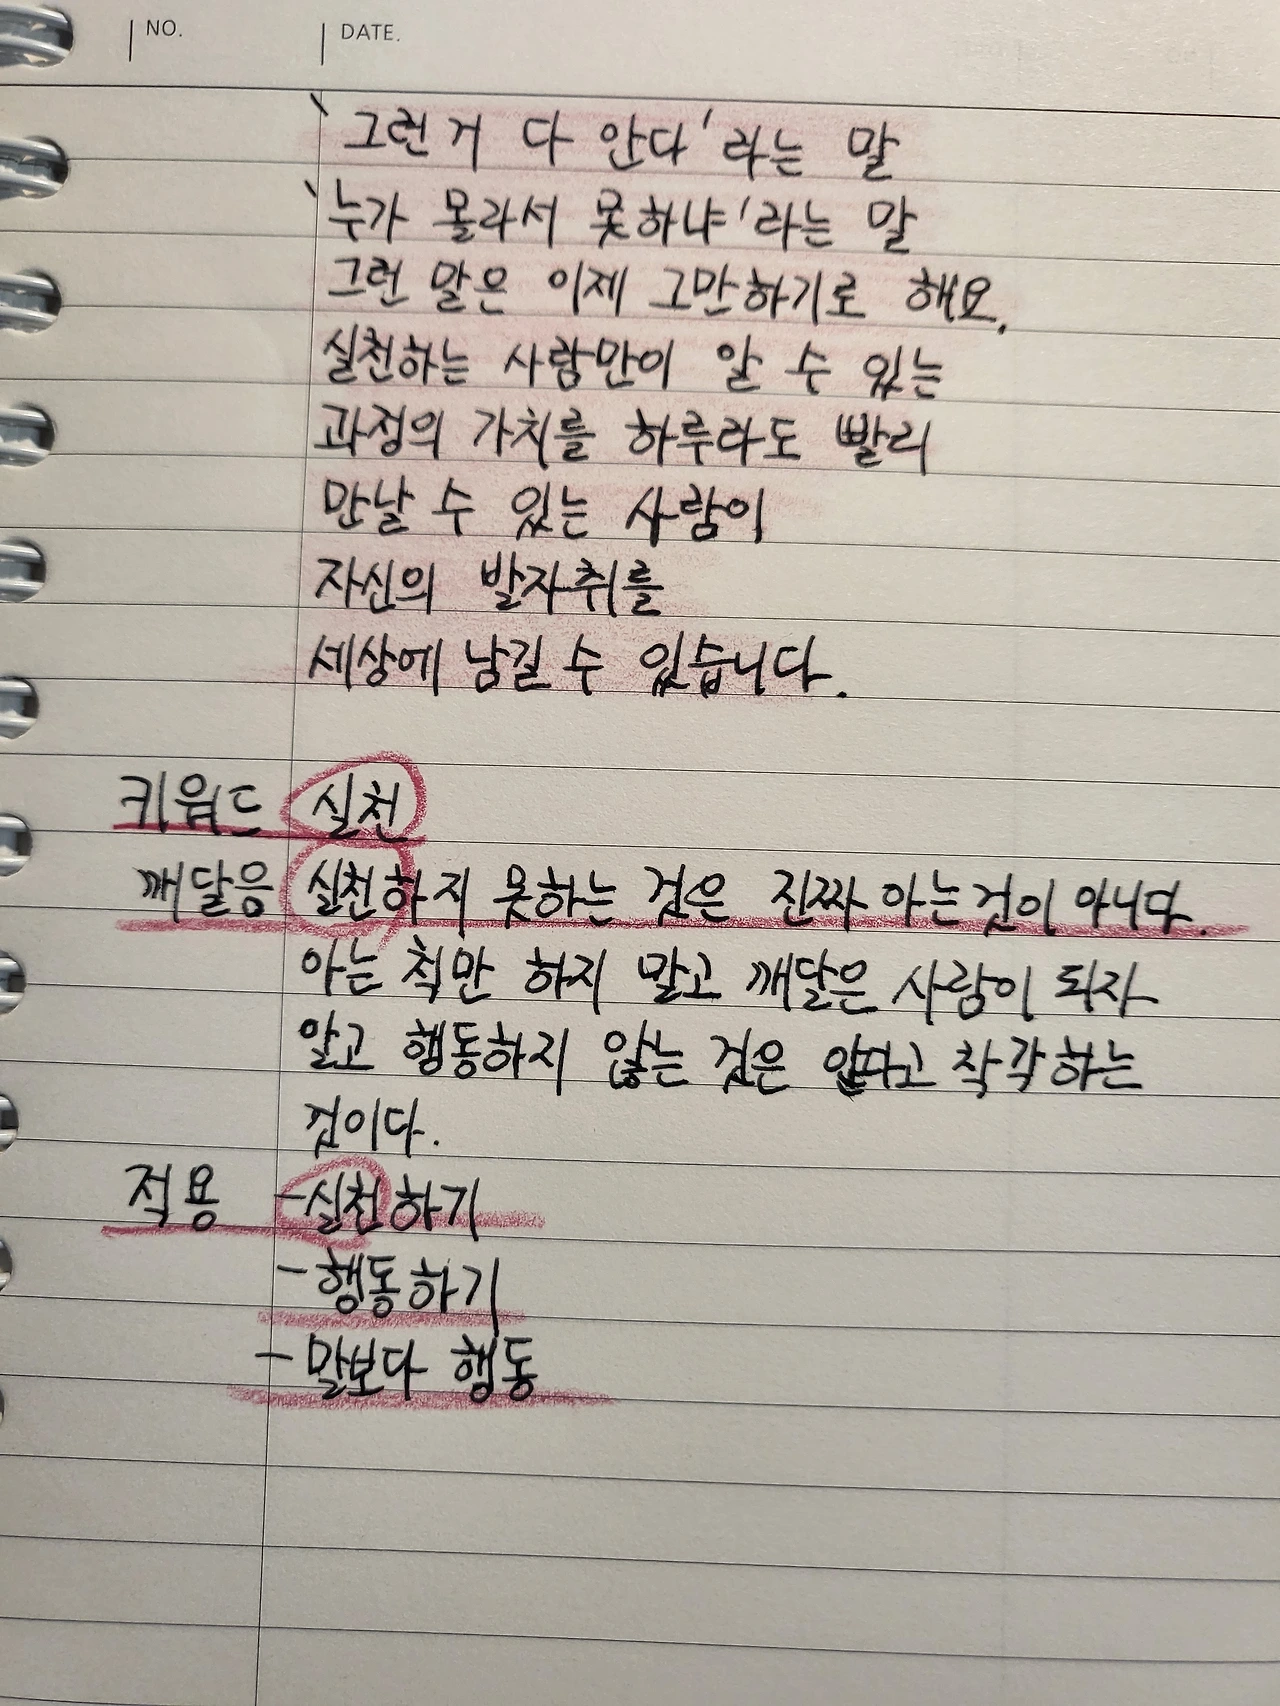 NO. DATE.
'그런거 다 안다'라는 말
'누가 몰라서 못하냐'라는 말
그런 말은 이제 그만하기로 해요.
실천하는 사람만이 알 수 있는
과정의 가치를 하루라도 빨리
만날 수 있는 사람이
자신의 발자취를
세상에 남길 수 있습니다.
키워드 실천
깨달음 실천하지 못하는 것은 진짜 아는것이 아니다.
아는 척만 하지 말고 깨달은 사람이 되자
알고 행동하지 않는 것은 안다고 착각하는
것이다.
적용 -실천하기
-행동하기
-말보다 행동